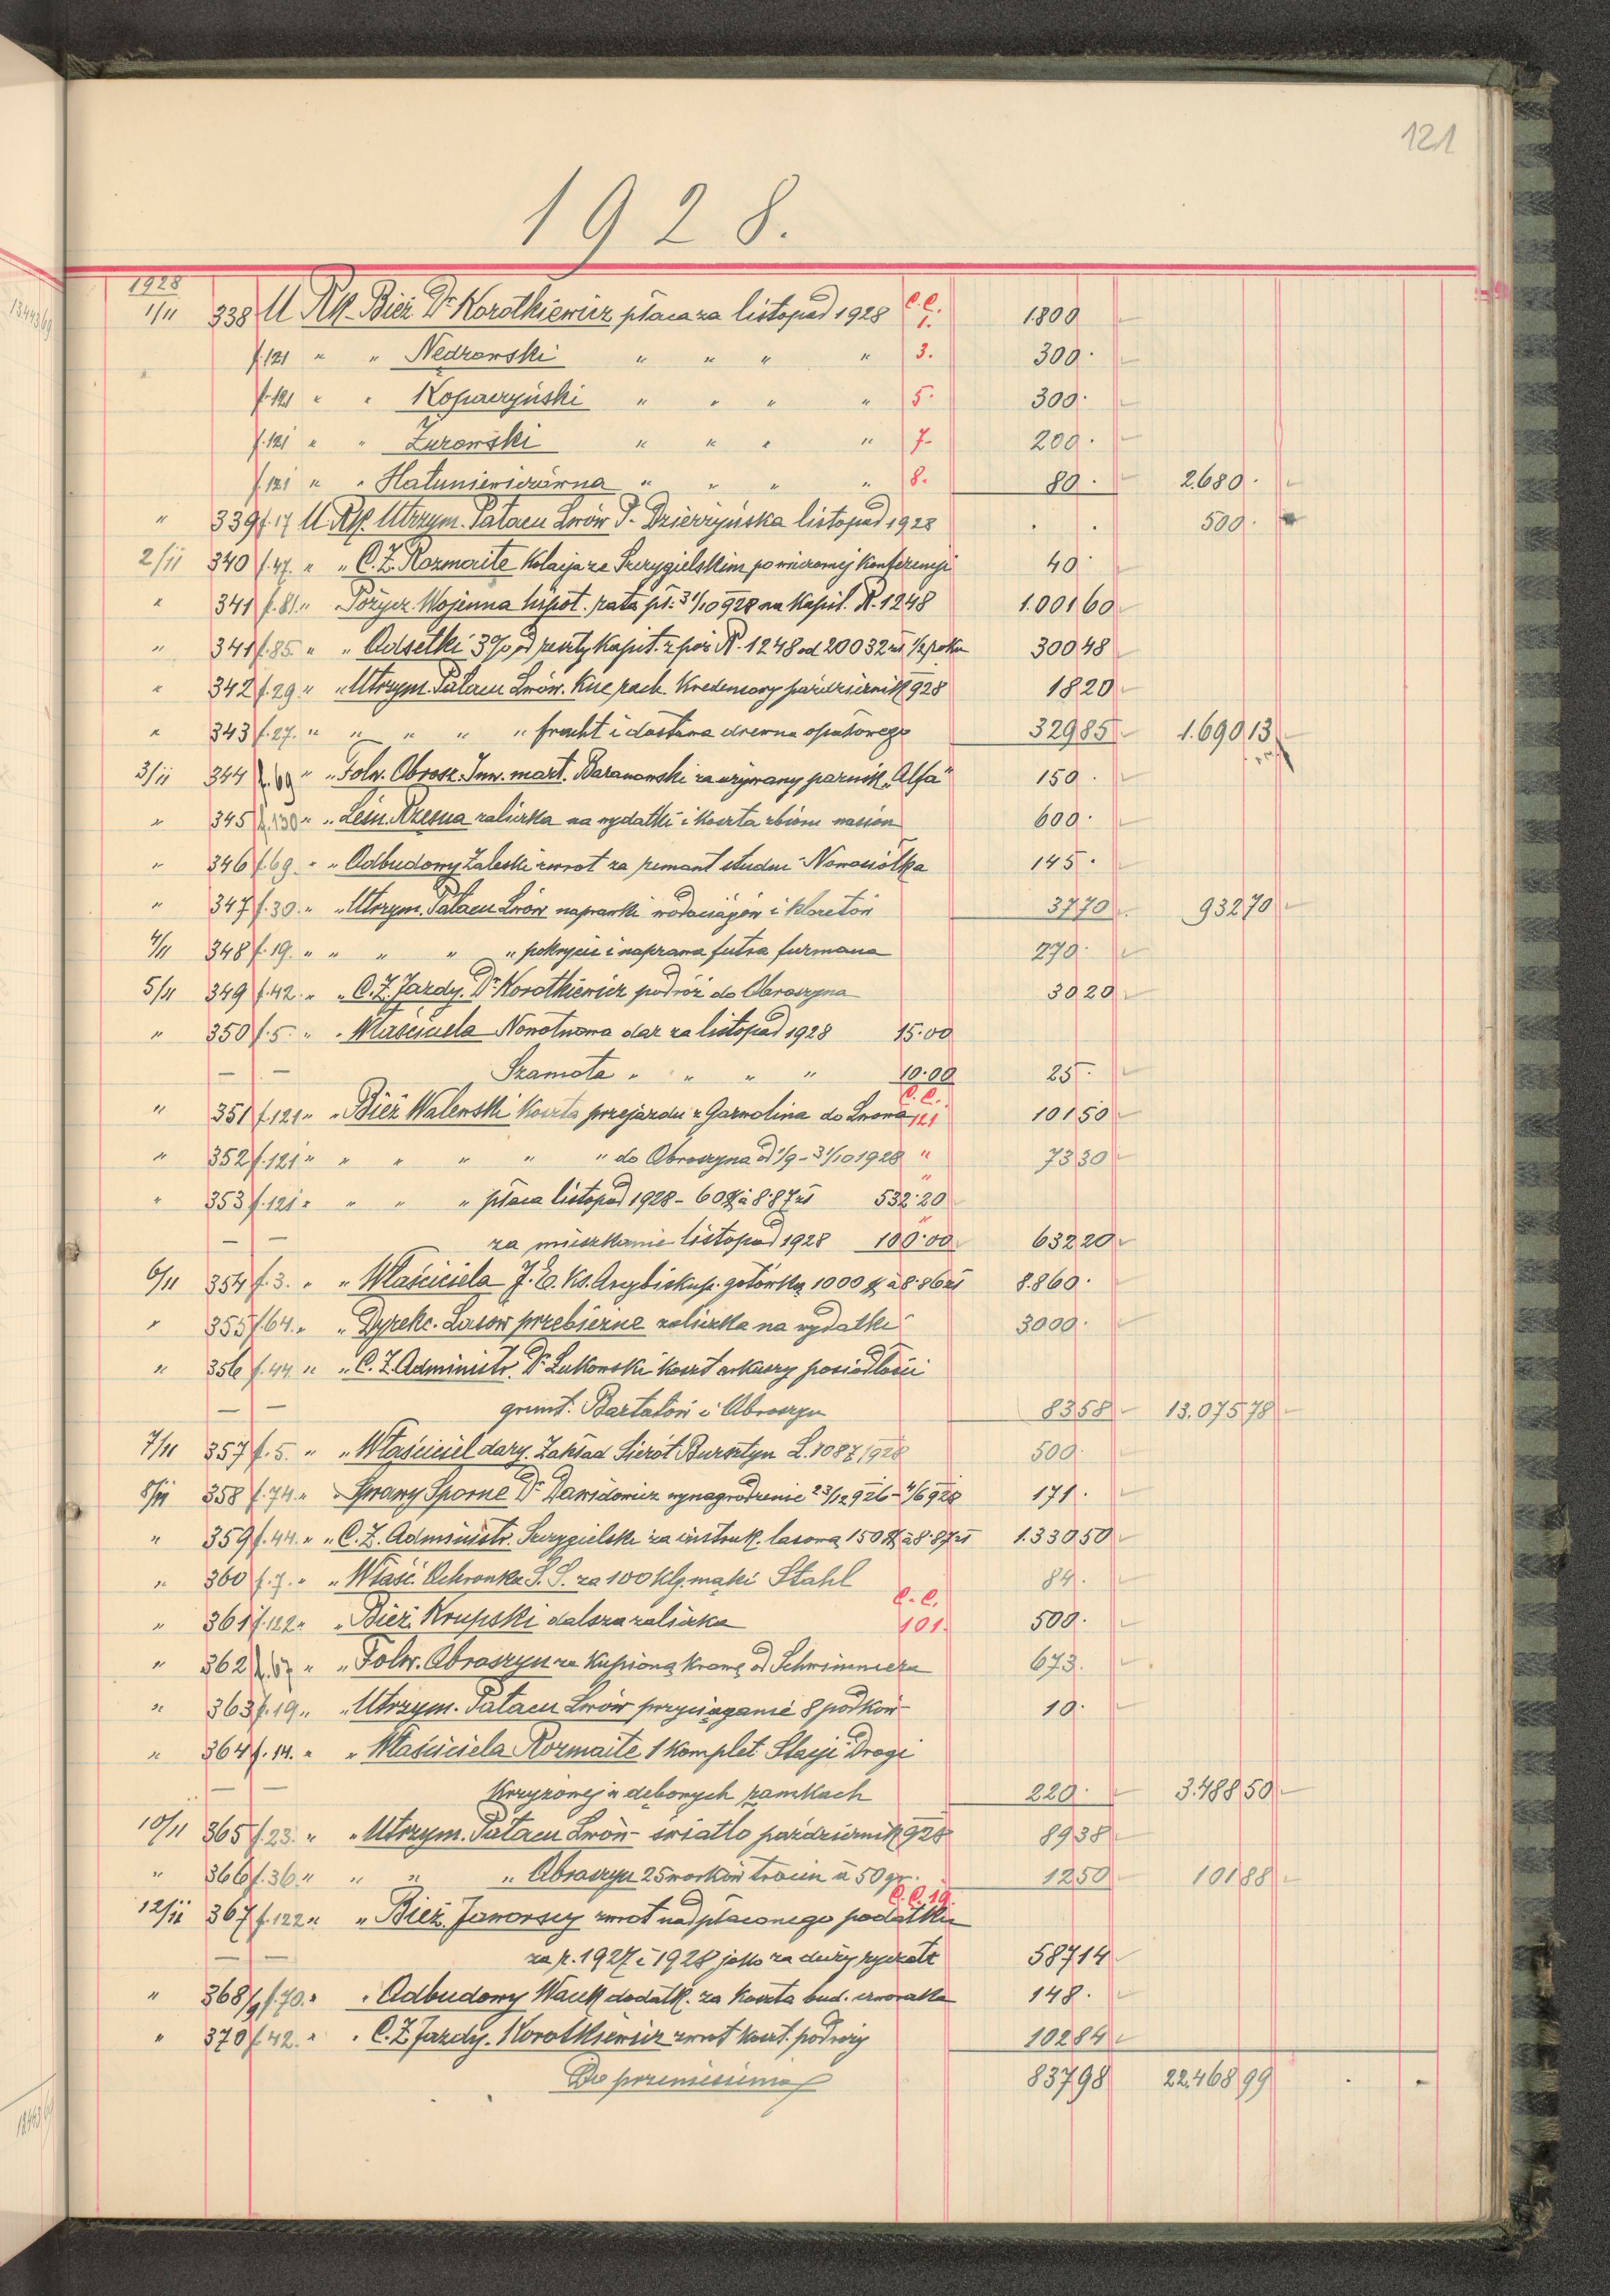 121
1928.
1928
1/11 338 U Rk. Bież Dr Korotkiewicz płaca za listopad 1928 C.C. 1. 1.800
f.121 " " Nedzowski " " " " 3. 300.
f.121 " " Kopaczyński " " " " 5. 300.
f.121 " " Żurowski " " " " 7. 200.
f.121 " " Hatuniewiczówna " " " " 8. 80. 2.680.
" 339 f.17 U Rk. Utrzym. Pałacu Lwów P. Dzierzyńska listopad 1928 . . 500.
2/11 340 f.47. " " C.Z. Rozmaite Kolacja ze Szczygielskim po wieczornej Konferencji 40.
" 341 f.81. " Pożycz. Wojenna hipot. rata pł. 31/10 928 na Kapit. R. 1248 1.001 60
" 341 f.85. " " Odsetki 3% od reszty Kapit. z poż R. 1248 od 20032 zł 1/2 roku 300 48
" 342 f.29. " " Utrzym. Pałacu Lwów. Kuc rach. Kredensowy październik 928 18 20
" 343 f.27. " " " " " fracht i dostawa drewna opałowego 329 85 1.690 13
3/11 344 f.69 " " Folw. Obrosz. Inw. mart. Baranowski za używany parnik "Alfa" 150.
" 345 f.130 " " Leśn. Rzęsna zaliczka na wydatki i koszta zbioru nasion 600.
" 346 f.69. " " Odbudowy Zaleski zwrot za remont studni Nowosiółka 145.
" 347 f.30. " " Utrzym. Pałacu Lwów naprawki wodociągów i klozetów 37 70 932 70
4/11 348 f.19. " " " " " pokrycie i naprawa futra furmana 270.
5/11 349 f.42. " " C.Z. Jazdy. Dr Korotkiewicz podróż do Obroszyna 30 20
" 350 f.5. " " Właściciela Nowotnowa dar za listopad 1928 15.00
— — Szamota " " " " 10.00 25.
C.C.
" 351 f.121 " " Bież Walewski Koszta przejazdu z Garwolina do Lwowa 121 101 50
" 352 f.121 " " " " " " do Obroszyna od 1/9 - 31/10 1928 " 73 30
" 353 f.121 " " " " płaca listopad 1928 - 60 $ à 8.87 zł " 532.20
— — za mieszkanie listopad 1928 " 100.00 632 20
6/11 354 f.3. " " Właściciela J.E. Ks. Arcybiskup. gotówką 1000 $ à 8.86 zł 8.860.
" 355 f.64. " " Dyrekc. Lasów przebieżne zaliczka na wydatki 3000.
" 356 f.44. " " C.Z. Administr. Dr Łukowski koszt arkuszy posiadłości
— — grunt. Bartatów i Obroszyn 83 58 13.075 78
7/11 357 f.5. " " Właściciel dary. Zakład Sierót Bursztyn L. 1087/1928 500.
8/11 358 f.74. " " Sprawy Sporne Dr Dawidowicz wynagrodzenie 23/12 926 - 4/6 928 171.
" 359 f.44. " " C.Z. Administr. Szczygielski za instruk. lasową 150 $ à 8.87 zł 1.330 50
" 360 f.7. " " Właść. Ochronka S.S. za 100 klg. mąki Stahl 84.
C.C.
" 361 f.122 " " Bież. Krupski dalsza zaliczka 101. 500.
" 362 f.67 " " Folw. Obroszyn za kupioną krowę od Schwimmera 673.
" 363 f.19. " " Utrzym. Pałacu Lwów przyciąganie 8 podków 10.
" 364 f.14. " " Właściciela Rozmaite 1 komplet Stacji Drogi
— — Krzyżowej w dębowych ramkach 220. 3.488 50
10/11 365 f.23. " " Utrzym. Pałacu Lwów - światło październik 928 89 38
" 366 f.36. " " " " Obroszyn 25 worków trocin à 50 gr. 12 50 101 88
C.C. 19.
12/11 367 f.122 " " Bież. Jaworscy zwrot nadpłaconego podatku
— — za r. 1927 i 1928 jako za duży ryczałt 587 14
" 368/9 f.70. " " Odbudowy Wauk dodatk. za koszta bud. czworaka 148.
" 370 f.42. " " C.Z. Jazdy. Korotkiewicz zwrot koszt. podróży 102 84
Do przeniesienia 837 98 22.468 99 . -